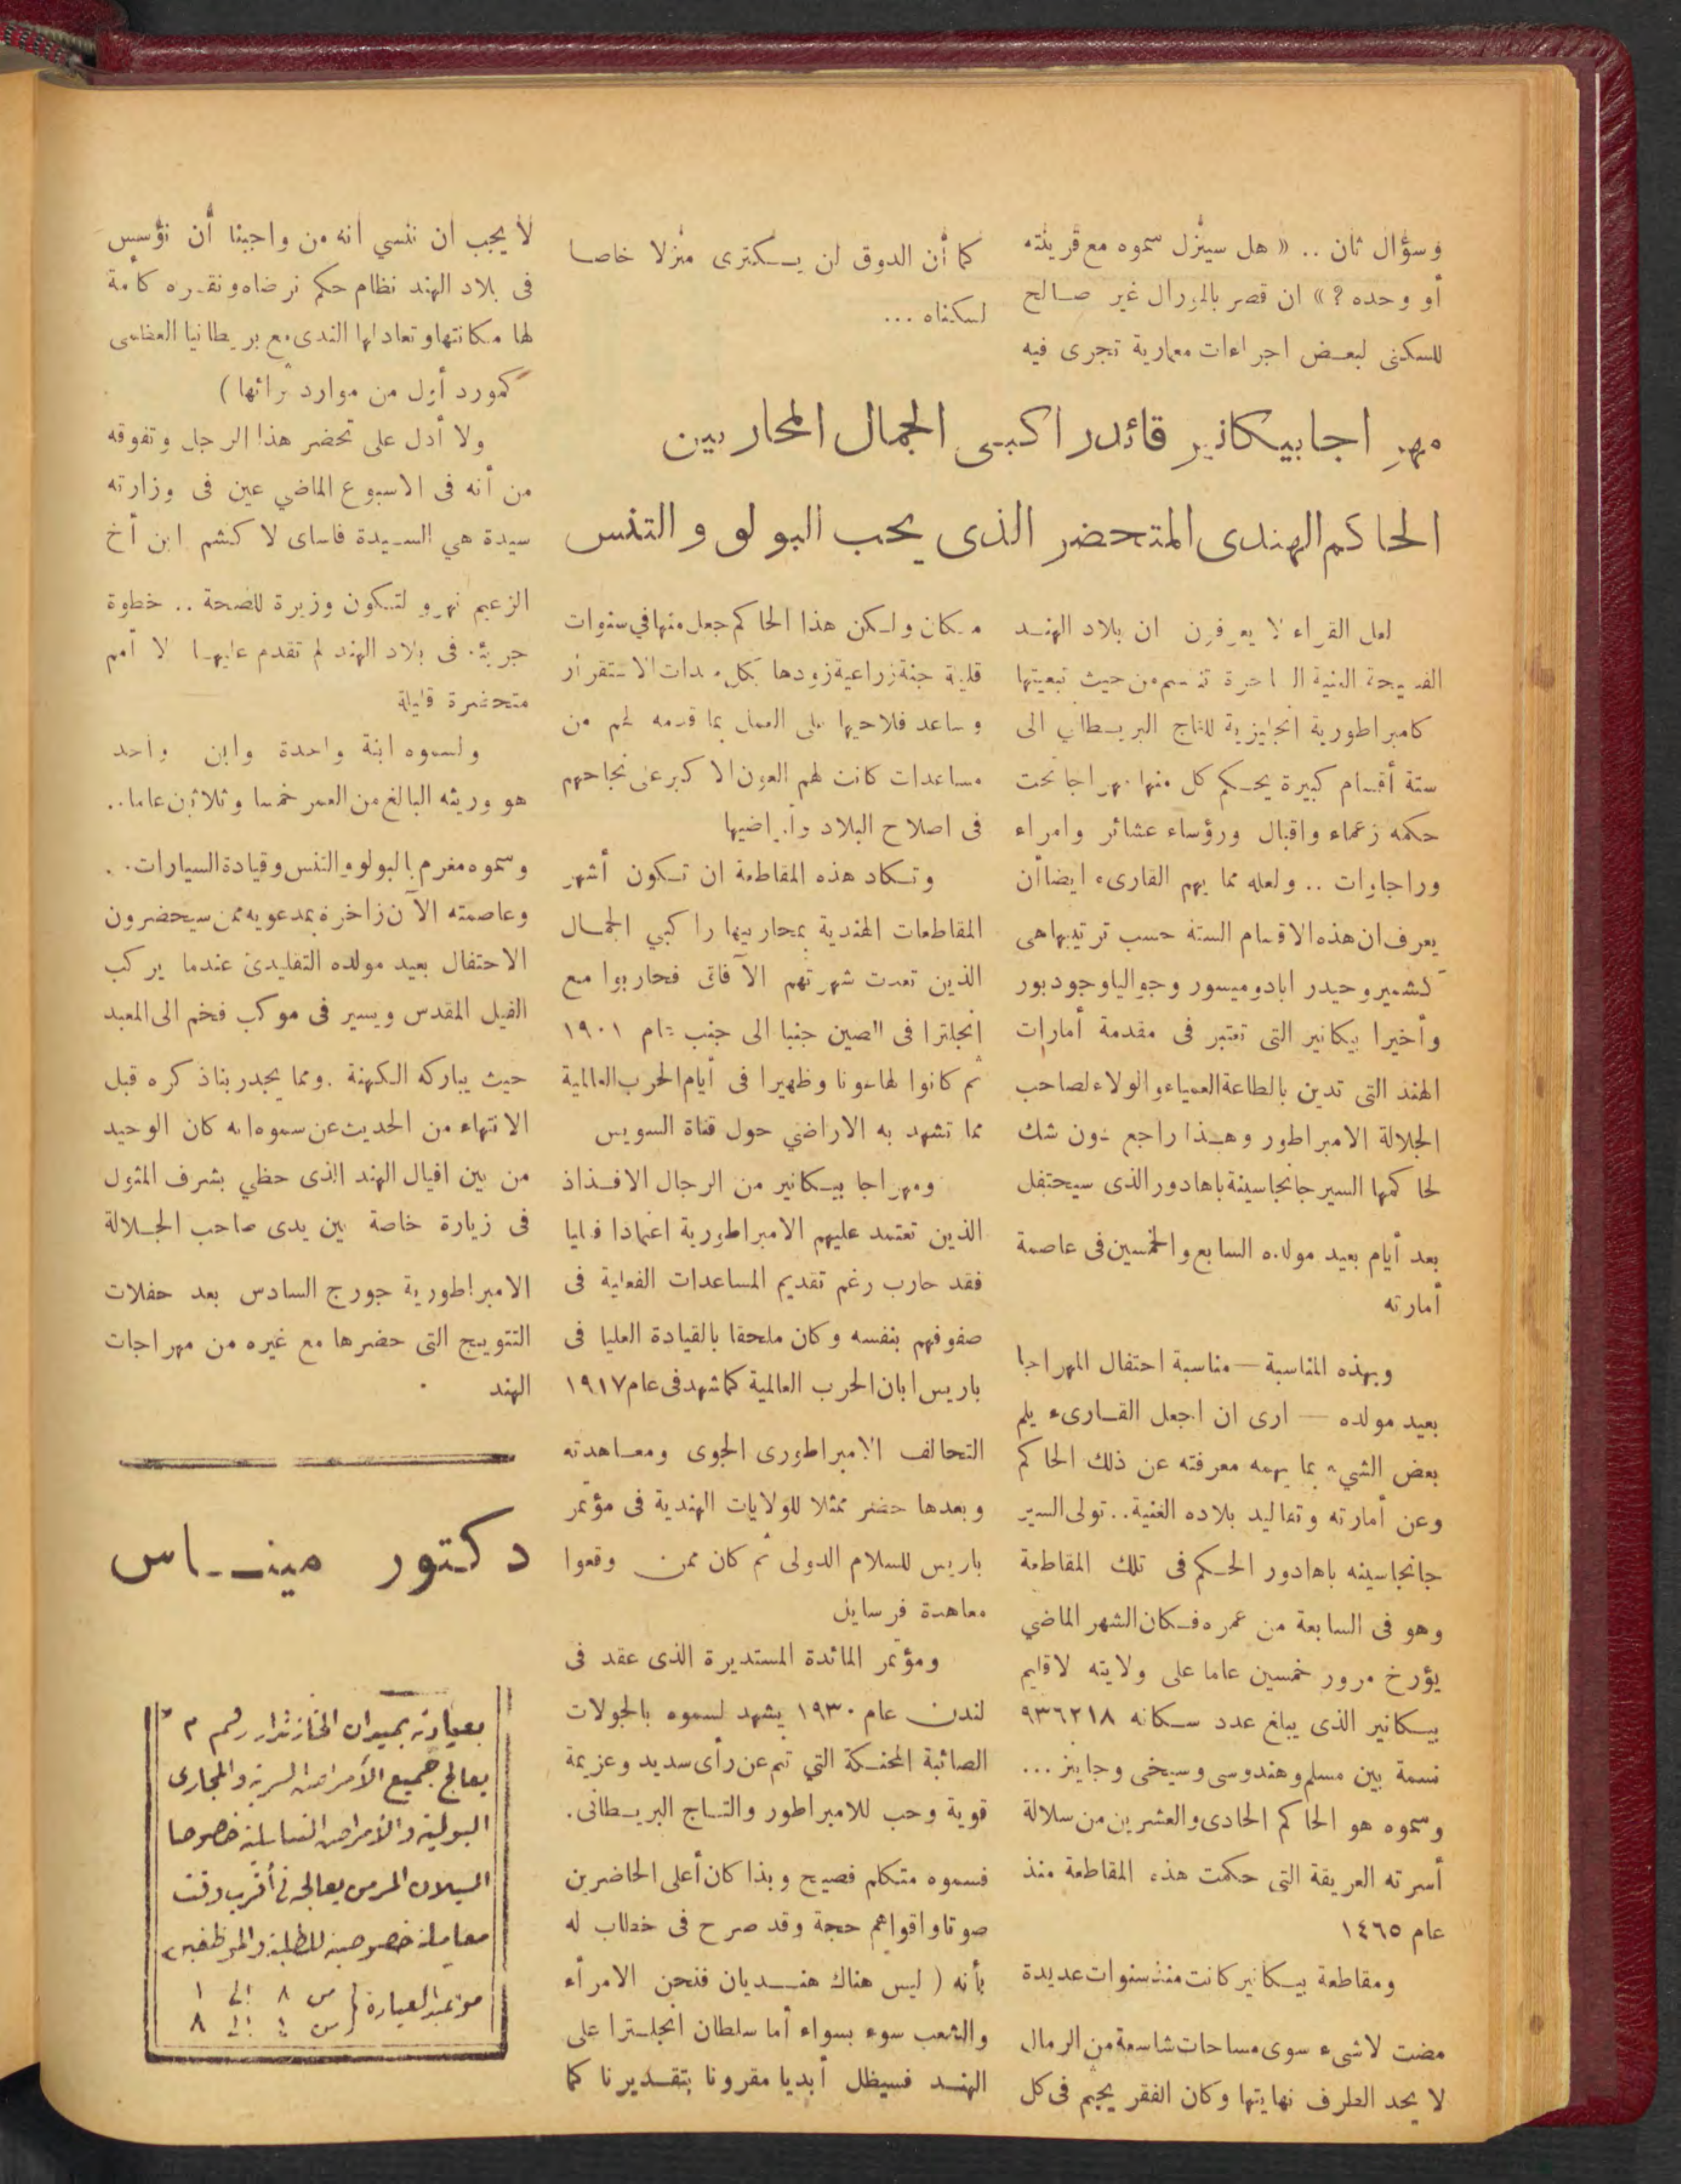 وسؤال ثان .. « هل سينزل سموه مع قرينته
أو وحده ? » ان قصر بالمورال غير صالح
للسكنى لبعض اجراءات معمارية تجرى فيه
كما أن الدوق لن يكترى منزلا خاصا
لسكناه ...
مهراجا بيكانير قائد راكبى الجمال المحاربين
الحاكم الهندى المتحضر الذى يحب البولو والتنس
لعل القراء لا يعرفون ان بلاد الهند
الفسيحة الغنية الساحرة تنقسم من حيث تبعيتها
كامبراطورية انجليزية للتاج البريطاني الى
ستة أقسام كبيرة يحكم كل منها مهراجا تحت
حكمه زعماء واقيال ورؤساء عشائر وامراء
وراجاوات .. ولعله مما يهم القارىء ايضا أن
يعرف ان هذه الاقسام الستة حسب ترتيبها هى
كشمير وحيدر اباد وميسور وجواليا وجودبور
وأخيرا بيكانير التى تعتبر فى مقدمة أمارات
الهند التى تدين بالطاعة العمياء والولاء لصاحب
الجلالة الامبراطور وهذا راجع دون شك
لحاكمها السير جانجاسينة باهادور الذى سيحتفل
بعد أيام بعيد مولده السابع والخمسين فى عاصمة
أمارته
وبهذه المناسبة — مناسبة احتفال المهراجا
بعيد مولده — ارى ان اجعل القارىء يلم
بعض الشيء بما يهمه معرفته عن ذلك الحاكم
وعن أمارته وتقاليد بلاده الغنية .. تولى السير
جانجاسينه باهادور الحكم فى تلك المقاطعة
وهو فى السابعة من عمره فكان الشهر الماضي
يؤرخ مرور خمسين عاما على ولايته لاقليم
بيكانير الذى يبلغ عدد سكانه ٩٣٦٢١٨
نسمة بين مسلم وهندوسى وسيخى وجاينز ...
وسموه هو الحاكم الحادى والعشرين من سلالة
أسرته العريقة التى حكمت هذه المقاطعة منذ
عام ١٤٦٥
ومقاطعة بيكانير كانت منذ سنوات عديدة
مضت لاشىء سوى مساحات شاسعة من الرمال
لا يحد الطرف نهايتها وكان الفقر يجثم فى كل
مكان ولكن هذا الحاكم جعل منها في سنوات
قليلة جنة زراعية زودها بكل معدات الاستقرار
وساعد فلاحيها على العمل بما قدمه لهم من
مساعدات كانت لهم العون الاكبر على نجاحهم
فى اصلاح البلاد وأراضيها
وتكاد هذه المقاطعة ان تكون أشهر
المقاطعات الهندية بمحاربيها راكبي الجمال
الذين تعدت شهرتهم الآفاق فحاربوا مع
انجلترا فى الصين جنبا الى جنب عام ١٩٠١
ثم كانوا لها عونا وظهيرا فى أيام الحرب العالمية
مما تشهد به الاراضي حول قناة السويس
ومهراجا بيكانير من الرجال الافذاذ
الذين تعتمد عليهم الامبراطورية اعتمادا فعليا
فقد حارب رغم تقديم المساعدات الفعلية فى
صفوفهم بنفسه وكان ملحقا بالقيادة العليا فى
باريس ابان الحرب العالمية كما شهد فى عام ١٩١٧
التحالف الامبراطورى الجوى ومعاهدته
وبعدها حضر ممثلا للولايات الهندية فى مؤتمر
باريس للسلام الدولى ثم كان ممن وقعوا
معاهدة فرسايل
ومؤتمر المائدة المستديرة الذى عقد فى
لندن عام ١٩٣٠ يشهد لسموه بالجولات
الصائبة المحنكة التي تم عن رأى سديد وعزيمة
قوية وحب للامبراطور والتاج البريطانى .
فسموه متكلم فصيح وبذا كان أعلى الحاضرين
صوتا واقواهم حجة وقد صرح فى خطاب له
بأنه ( ليس هناك هنديان فنحن الامراء
والشعب سوء بسواء أما سلطان انجلترا على
الهند فسيظل أبديا مقرونا بتقديرنا كما
لا يجب ان ننسي انه من واجبنا أن نؤسس
فى بلاد الهند نظام حكم نرضاه ونقدره كأمة
لها مكانتها وتعادلها الندى مع بريطانيا العظمى
كمورد أول من موارد ثرائها )
ولا أدل على تحضر هذا الرجل وتفوقه
من أنه فى الاسبوع الماضي عين فى وزارته
سيدة هي السيدة فاساى لا كشم ابن أخ
الزعيم نهرو لتكون وزيرة للصحة .. خطوة
جريئة فى بلاد الهند لم تقدم عليها الا أمم
متحضرة قليلة
ولسموه ابنة واحدة وابن واحد
هو وريثه البالغ من العمر خمسا وثلاثين عاما ..
وسموه مغرم بالبولو والتنس وقيادة السيارات . .
وعاصمته الآن زاخرة بمدعويه ممن سيحضرون
الاحتفال بعيد مولده التقليدى عندما يركب
الفيل المقدس ويسير فى موكب فخم الى المعبد
حيث يباركه الكهنة . ومما يجدر بنا ذكره قبل
الانتهاء من الحديث عن سموه انه كان الوحيد
من بين اقيال الهند الذى حظي بشرف المثول
فى زيارة خاصة بين يدى صاحب الجلالة
الامبراطورية جورج السادس بعد حفلات
التتويج التى حضرها مع غيره من مهراجات
الهند
دكتور مينـاس
بعيادته بميدان الخازندار رقم ٣
يعالج جميع الأمراض السرية والمجارى
البولية والأمراض التناسلية خصوصا
السيلان المزمن يعالجه فى أقرب وقت
معاملة خصوصية للطلبة والموظفين
مواعيد العيادة من ٨ إلى ١
من ٤ إلى ٨